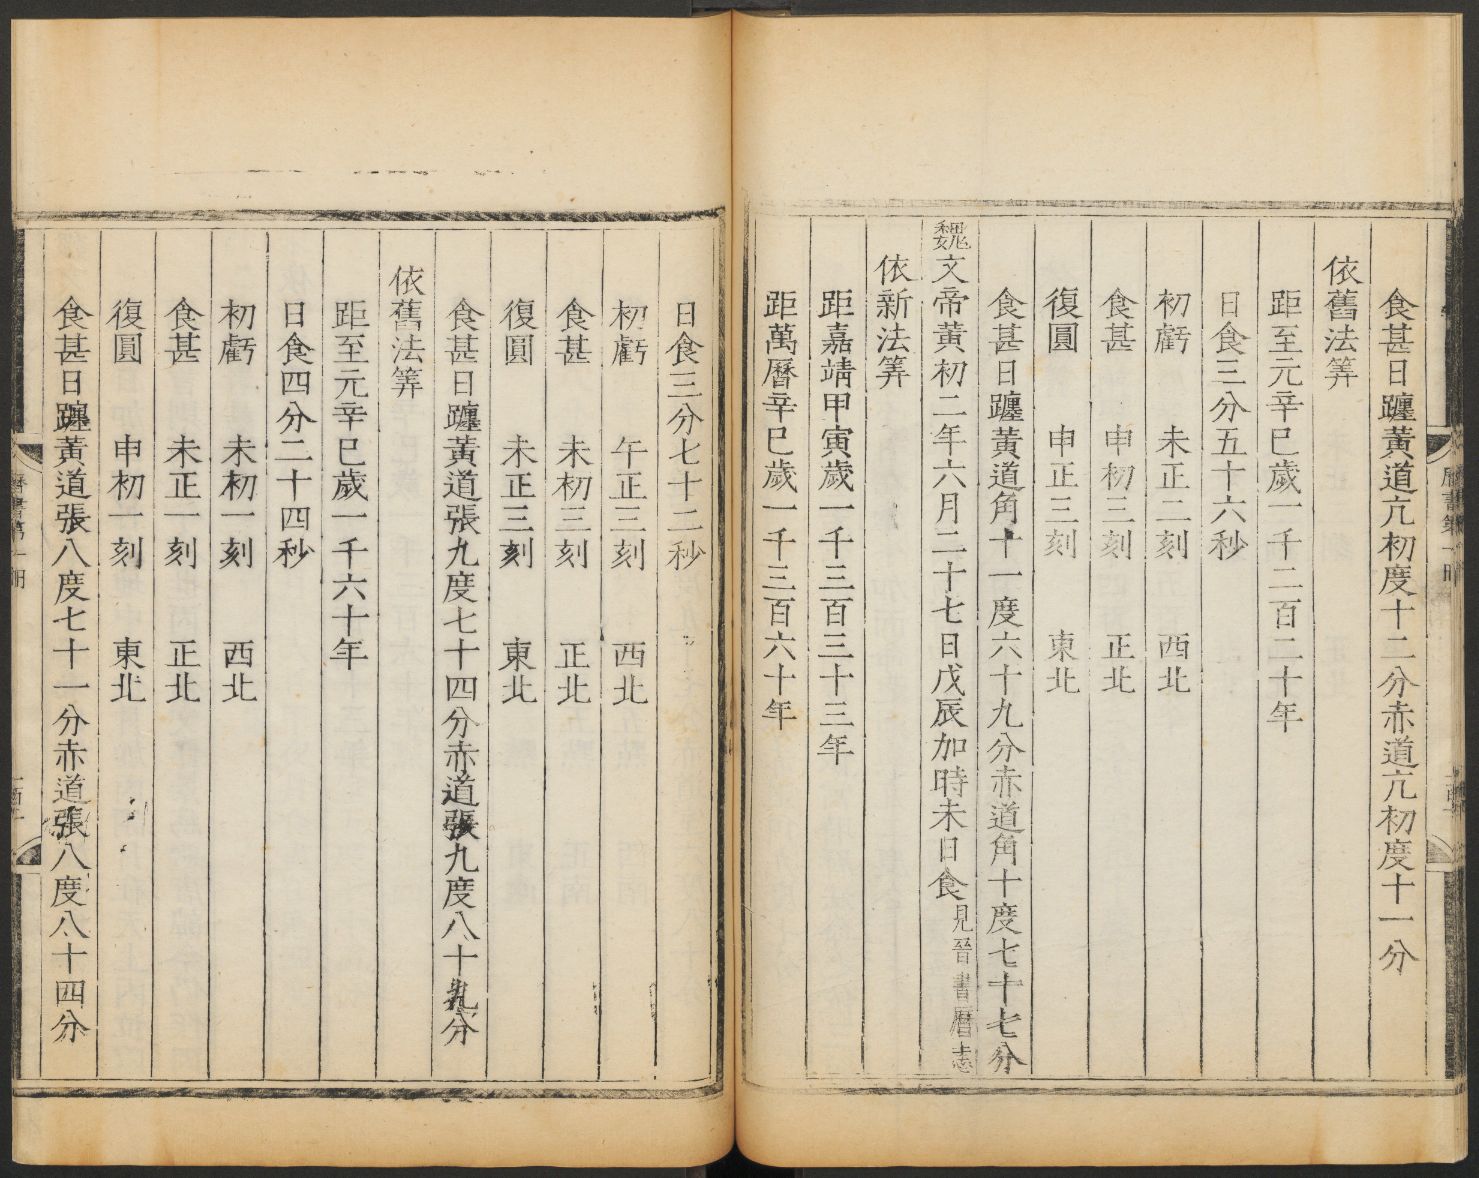 食甚日躔黃道亢初度十二分赤道亢初度十一分
依舊法筭
距至元辛巳歲一千二百二十年
日食三分五十六秒
初虧 未正二刻 西北
食甚 申初三刻 正北
復圓 申正三刻 東北
食甚日躔黃道角十一度六十九分赤道角十度七十七分
魏文帝黃初二年六月二十七日戊辰加時未日食見晉書曆志
依新法筭
距嘉靖甲寅歲一千三百三十三年
距萬曆辛巳歲一千三百六十年
日食三分七十二秒
初虧 午正三刻 西北
食甚 未初三刻 正北
復圓 未正三刻 東北
食甚日躔黃道張九度七十四分赤道張九度八十九分
依舊法筭
距至元辛巳歲一千六十年
日食四分二十四秒
初虧 未初一刻 西北
食甚 未正一刻 正北
復圓 申初一刻 東北
食甚日躔黃道張八度七十一分赤道張八度八十四分
曆書第一冊